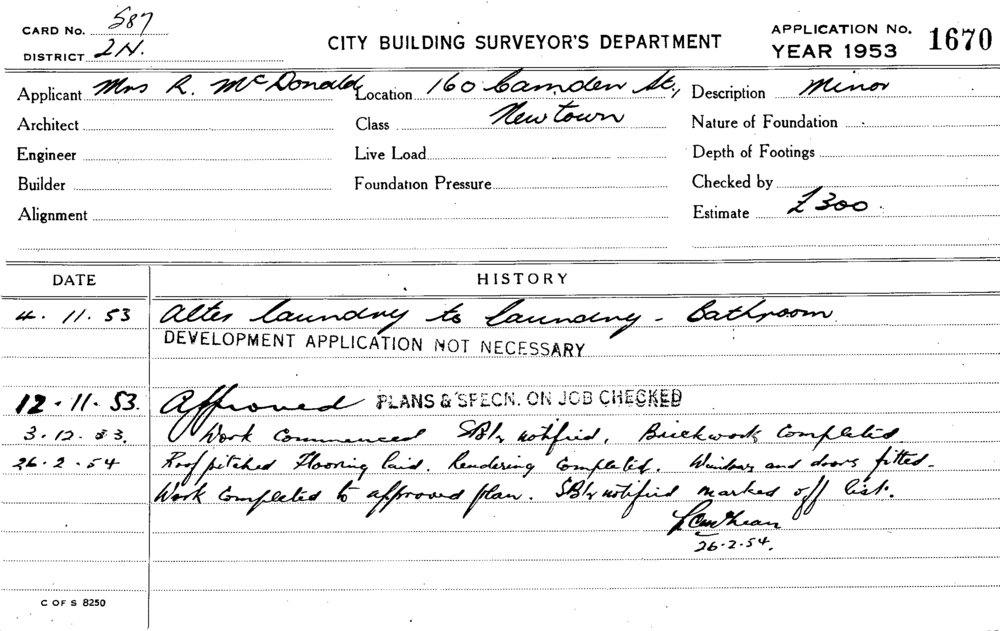 CARD No. 587
DISTRICT 2N.
CITY BUILDING SURVEYOR'S DEPARTMENT
APPLICATION No. 1670
YEAR 1953
Applicant Mrs R. McDonald Location 160 Camden St., Description Minor
Architect Class Newtown Nature of Foundation
Engineer Live Load Depth of Footings
Builder Foundation Pressure Checked by
Alignment Estimate £300.
DATE HISTORY
4.11.53 Alter laundry to laundry - Bathroom
DEVELOPMENT APPLICATION NOT NECESSARY
12.11.53. Approved PLANS & SPECN. ON JOB CHECKED
3.12.53. Work Commenced notified, Brickwork Completed
26.2.54 Roof pitched Flooring laid. Rendering Completed. Windows and doors fitted.
Work Completed to approved plan. notified marked off list.
26.2.54.
C OF S 8250